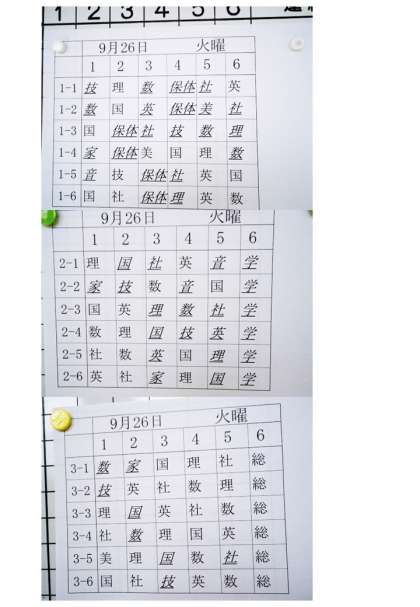 1 2 3 4 5 6
9月26日 火曜
1 2 3 4 5 6
1-1 技 理 数 保体 社 英
1-2 数 国 英 保体 美 社
1-3 国 保体 社 技 数 理
1-4 家 保体 美 国 理 数
1-5 音 技 保体 社 英 国
1-6 国 社 保体 理 英 数
9月26日 火曜
1 2 3 4 5 6
2-1 理 国 社 英 音 学
2-2 家 技 数 音 国 学
2-3 国 英 理 数 社 学
2-4 数 理 国 技 英 学
2-5 社 数 英 国 理 学
2-6 英 社 家 理 国 学
9月26日 火曜
1 2 3 4 5 6
3-1 数 家 国 理 社 総
3-2 技 英 社 数 理 総
3-3 理 国 英 社 数 総
3-4 社 数 理 国 英 総
3-5 美 理 国 数 社 総
3-6 国 社 技 英 数 総